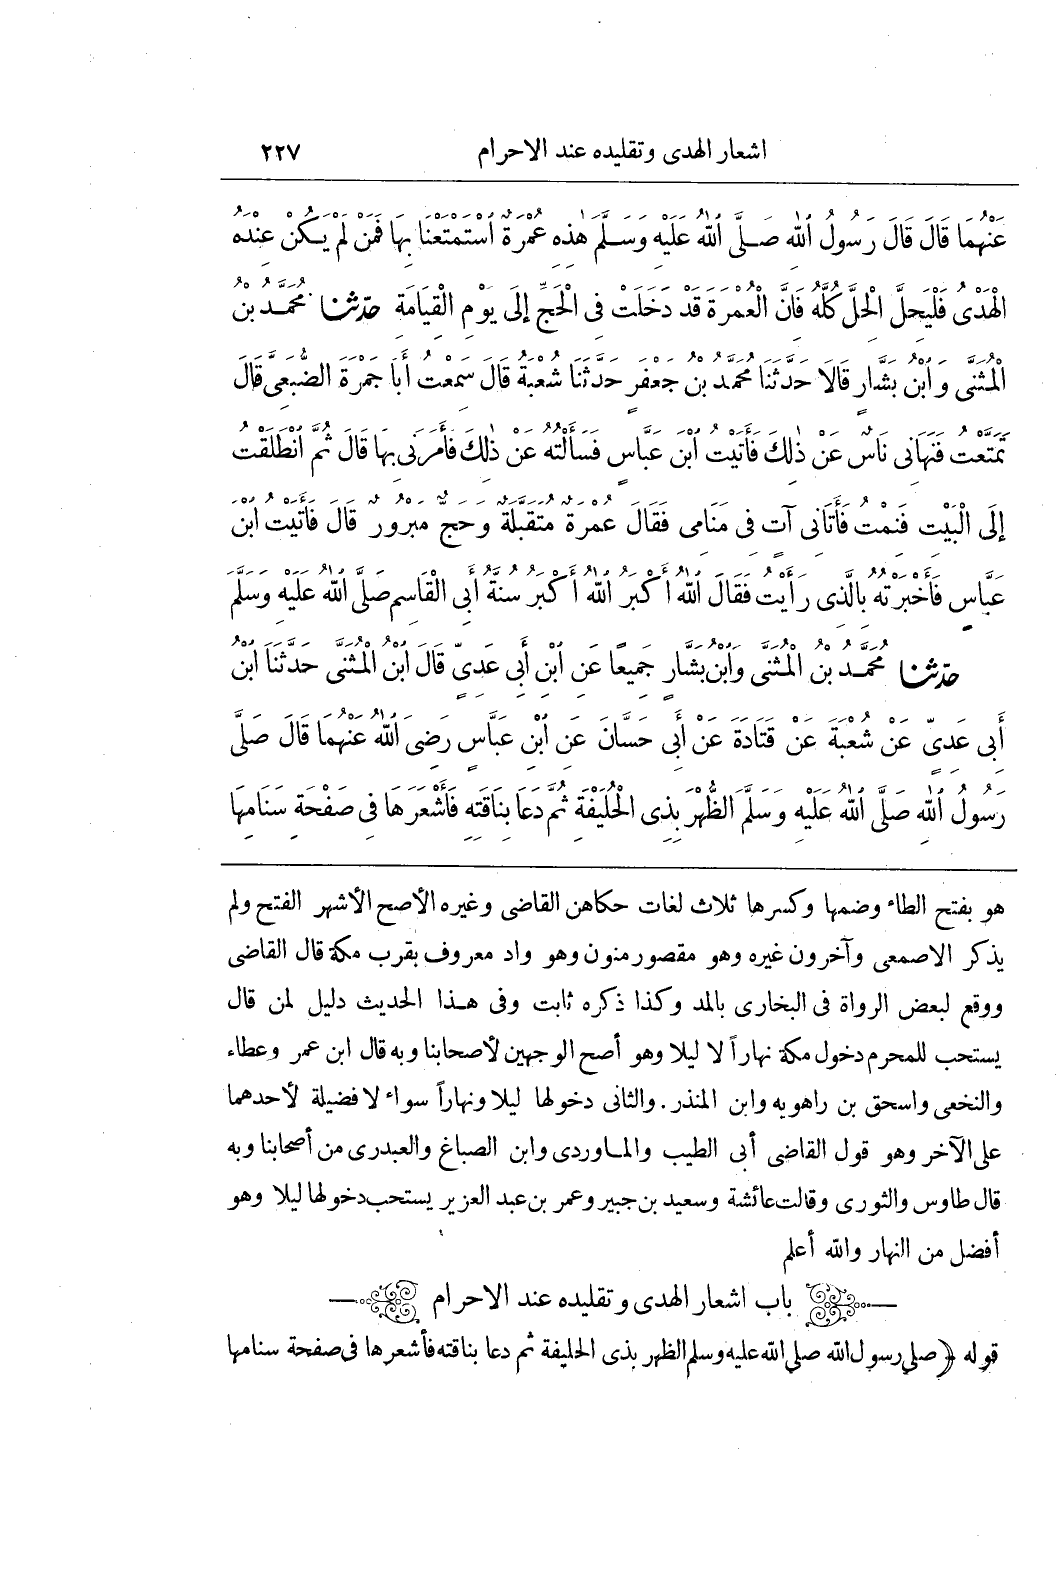 اشعار الهدى وتقليده عند الاحرام ٢٢٧
عَنْهُمَا قَالَ قَالَ رَسُولُ اللهِ صَلَّى اللهُ عَلَيْهِ وَسَلَّمَ هٰذِهِ عُمْرَةٌ اسْتَمْتَعْنَا بِهَا فَمَنْ لَمْ يَكُنْ عِنْدَهُ
الْهَدْىُ فَلْيَحِلَّ الْحِلَّ كُلَّهُ فَانَّ الْعُمْرَةَ قَدْ دَخَلَتْ فِى الْحَجِّ إِلَى يَوْمِ الْقِيَامَةِ حدّثنا مُحَمَّدُ بْنُ
الْمُثَنَّى وَابْنُ بَشَّارٍ قَالَا حَدَّثَنَا مُحَمَّدُ بْنُ جَعْفَرٍ حَدَّثَنَا شُعْبَةُ قَالَ سَمِعْتُ أَبَا جَمْرَةَ الضُّبَعِىَّ قَالَ
تَمَتَّعْتُ فَنَهَانِى نَاسٌ عَنْ ذٰلِكَ فَأَتَيْتُ ابْنَ عَبَّاسٍ فَسَأَلْتُهُ عَنْ ذٰلِكَ فَأَمَرَنِى بِهَا قَالَ ثُمَّ انْطَلَقْتُ
إِلَى الْبَيْتِ فَنِمْتُ فَأَتَانِى آتٍ فِى مَنَامِى فَقَالَ عُمْرَةٌ مُتَقَبَّلَةٌ وَحَجٌّ مَبْرُورٌ قَالَ فَأَتَيْتُ ابْنَ
عَبَّاسٍ فَأَخْبَرْتُهُ بِالَّذِى رَأَيْتُ فَقَالَ اللهُ أَكْبَرُ اللهُ أَكْبَرُ سُنَّةُ أَبِى الْقَاسِمِ صَلَّى اللهُ عَلَيْهِ وَسَلَّمَ
حدّثنا مُحَمَّدُ بْنُ الْمُثَنَّى وَابْنُ بَشَّارٍ جَمِيعًا عَنِ ابْنِ أَبِى عَدِىٍّ قَالَ ابْنُ الْمُثَنَّى حَدَّثَنَا ابْنُ
أَبِى عَدِىٍّ عَنْ شُعْبَةَ عَنْ قَتَادَةَ عَنْ أَبِى حَسَّانَ عَنِ ابْنِ عَبَّاسٍ رَضِىَ اللهُ عَنْهُمَا قَالَ صَلَّى
رَسُولُ اللهِ صَلَّى اللهُ عَلَيْهِ وَسَلَّمَ الظُّهْرَ بِذِى الْحُلَيْفَةِ ثُمَّ دَعَا بِنَاقَتِهِ فَأَشْعَرَهَا فِى صَفْحَةِ سَنَامِهَا
هو بفتح الطاء وضمها وكسرها ثلاث لغات حكاهن القاضى وغيره الأصح الأشهر الفتح ولم
يذكر الاصمعى وآخرون غيره وهو مقصور منون وهو واد معروف بقرب مكة قال القاضى
ووقع لبعض الرواة فى البخارى بالمد وكذا ذكره ثابت وفى هذا الحديث دليل لمن قال
يستحب للمحرم دخول مكة نهاراً لا ليلا وهو أصح الوجهين لأصحابنا وبه قال ابن عمر وعطاء
والنخعى واسحق بن راهويه وابن المنذر. والثانى دخولها ليلا ونهاراً سواء لا فضيلة لأحدهما
على الآخر وهو قول القاضى أبى الطيب والماوردى وابن الصباغ والعبدرى من أصحابنا وبه
قال طاوس والثورى وقالت عائشة وسعيد بن جبير وعمر بن عبد العزيز يستحب دخولها ليلا وهو
أفضل من النهار والله أعلم
باب اشعار الهدى وتقليده عند الاحرام
قوله ﴿صلى رسول الله صلى الله عليه وسلم الظهر بذى الحليفة ثم دعا بناقته فأشعرها فى صفحة سنامها